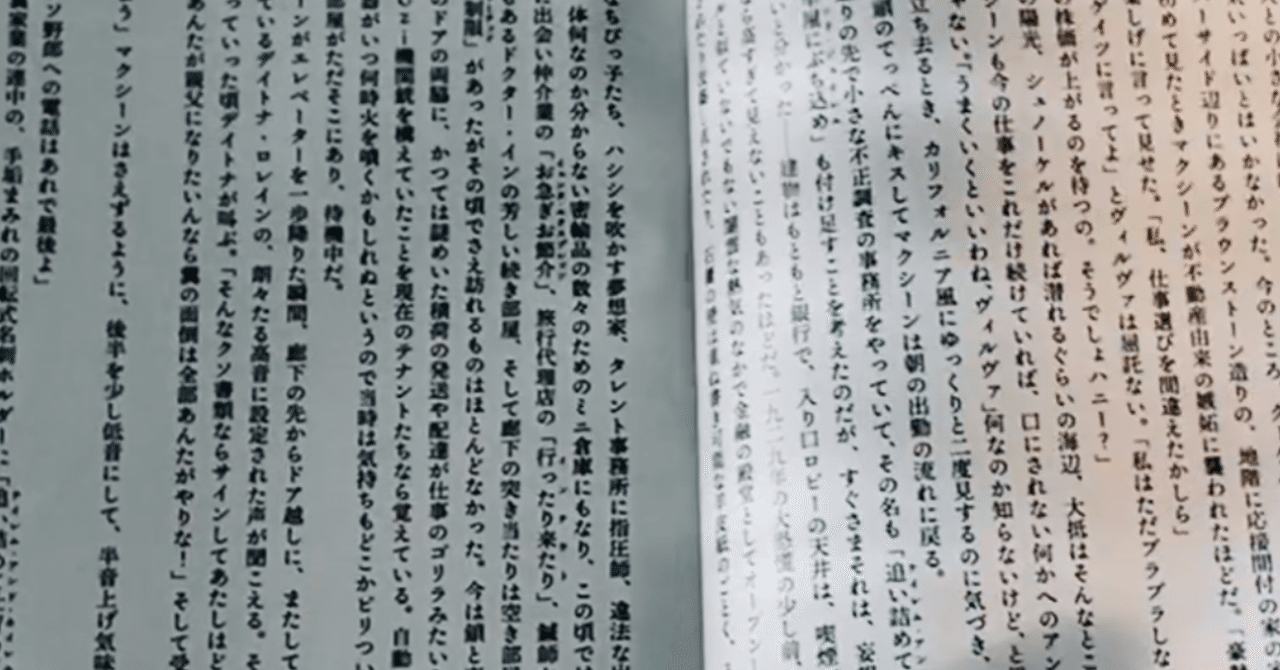 いっぱいとはいかなかった。今のところ、
ーサイド辺りにあるブラウンストーン造りの、地階に応接間付の家の
初めて見たときマクシーンが不動産由来の嫉妬に襲われたほどだ。「豪
楽しげに言って見せた。「私、仕事選びを間違えたかしら」
ダイツに言ってよ」とヴィルヴァは屈託ない。「私はただブラブラしな
の株価が上がるのを待つの。そうでしょハニー?」
の陽光、シュノーケルがあれば潜れるぐらいの海辺、大抵はそんなとこ
シーンも今の仕事をこれだけ続けていれば、口にされない何かへのアン
ゃない。「うまくいくといいわね、ヴィルヴァ」何なのか知らないけど、と
立ち去るとき、カリフォルニア風にゆっくりと二度見するのに気づき、
頭のてっぺんにキスしてマクシーンは朝の出勤の流れに戻る。
りの先で小さな不正調査の事務所をやっていて、その名も「追い詰めて
風にぶち込め」も付け足すことを考えたのだが、すぐさまそれは、妄想
と分かった――建物はもともと銀行で、入り口ロビーの天井は、喫煙
ら高すぎて見えないこともあったほどだ。一九二九年の大恐慌の少し前、
なちびっ子たち、ハシシを吹かす夢想家、タレント事務所に指圧師、違法な
体何なのか分からない密輸品の数々のためのミニ倉庫にもなり、この頃では
た出会い仲介業の「お急ぎお節介」、旅行代理店の「行ったり来たり」、鍼師
もあるドクター・インの芳しい続き部屋、そして廊下の突き当たりは空き部
制限」があったがその頃でさえ訪れるものはほとんどなかった。今は鎖と
のドアの両脇に、かつては謎めいた積荷の発送や配達が仕事のゴリラみたい
機関銃を構えていたことを現在のテナントたちなら覚えている。自動
器がいつ何時火を噴くかもしれぬというので当時は気持ちもどこかピリつい
部屋がただそこにあり、待機中だ。
ーンがエレベーターを一歩降りた瞬間、廊下の先からドア越しに、またして
ているデイトナ・ロレインの、朗々たる高音に設定された声が聞こえる。そ
っていった頃デイトナが叫ぶ。「そんなクソ書類ならサインしてあたしはど
あんたが親父になりたいんなら翼の面倒は全部あんたがやりな!」そして受
う」マクシーンはさえずるように、後半を少し低音にして、半音上げ気味
ソ野郎への電話はあれで最後よ」
業の連中の、手垢まみれの回転式名刺ホルダーに「追い詰め